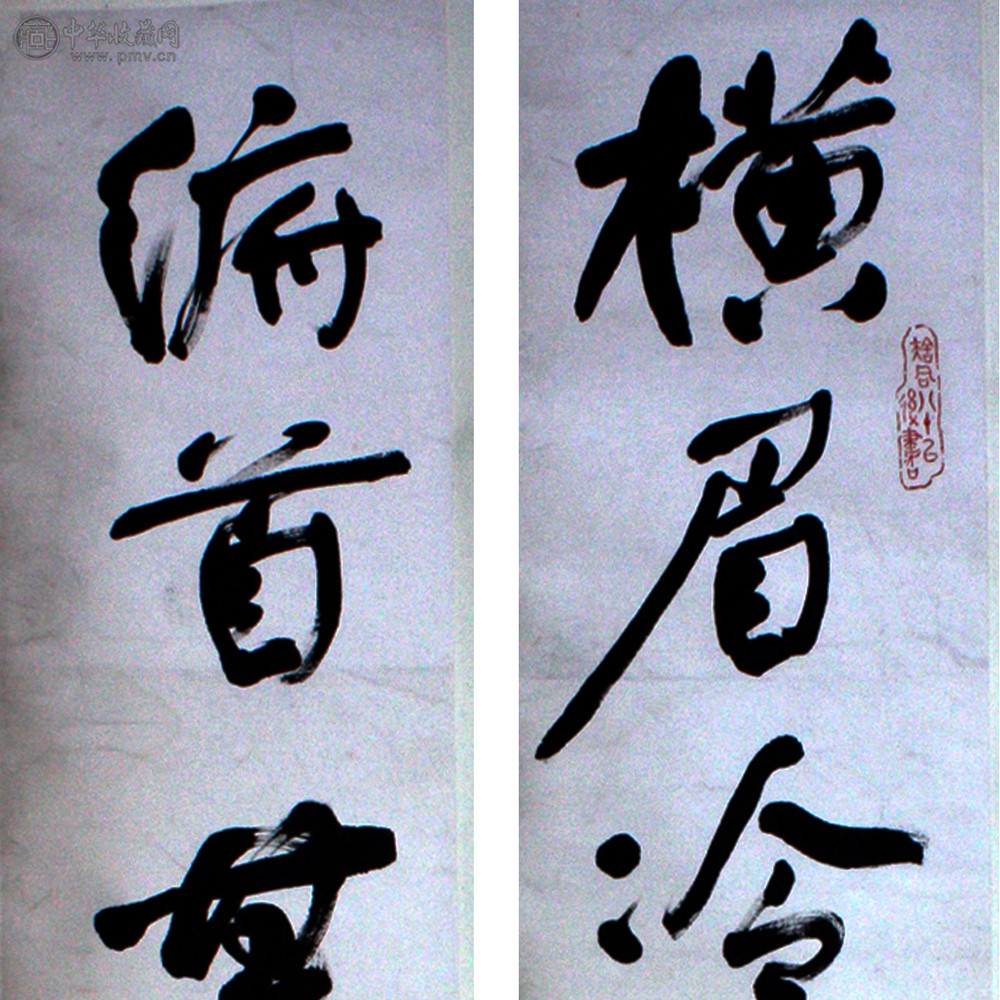 中华收藏网
www.pmv.cn
横眉冷
俯首